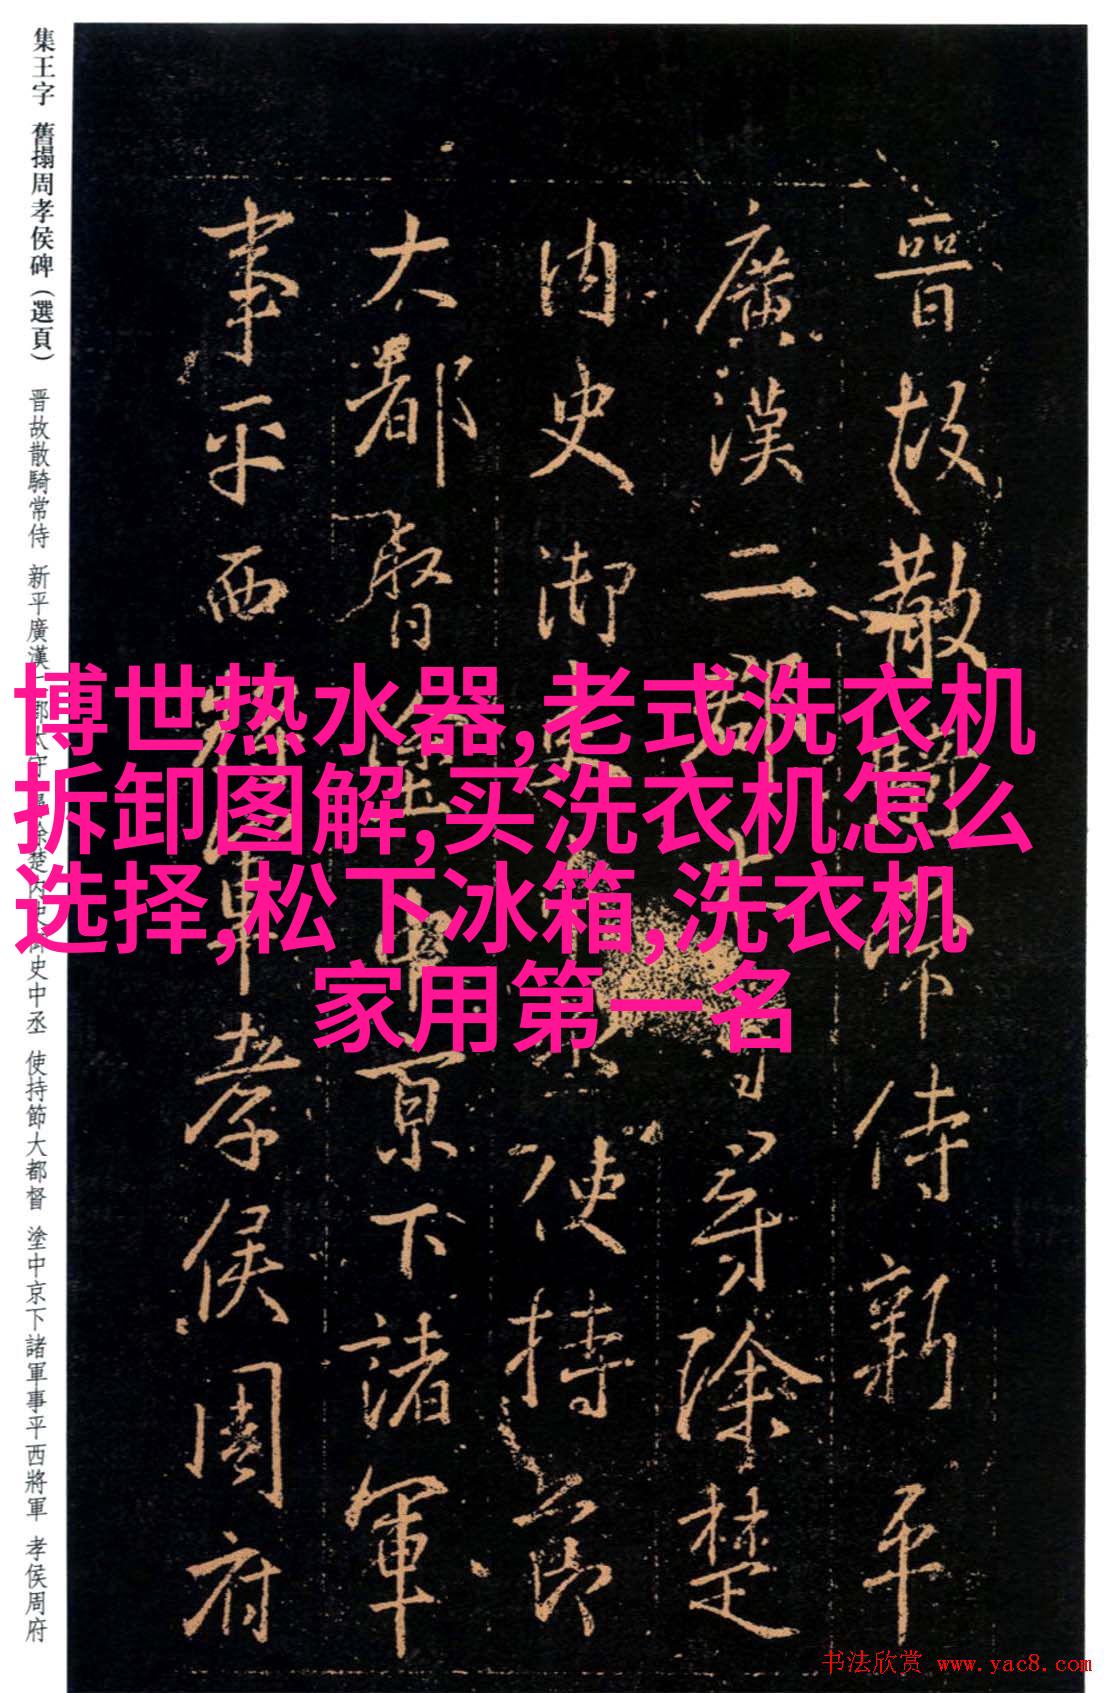 集王字 舊搨周孝侯碑（選頁） 晋故散騎常侍 新平廣漢二郡太守 尋除楚内史御史中丞 使持節大都督 塗中京下諸軍事平西將軍 孝侯周府
晉故散騎常侍新平
廣漢二郡太守尋除楚
内史御史中丞使持節
大都督塗中京下諸軍
事平西將軍孝侯周府
博世热水器,老式洗衣机
拆卸图解,买洗衣机怎么
选择,松下冰箱,洗衣机
家用第一名
书法欣赏 www.yac8.com